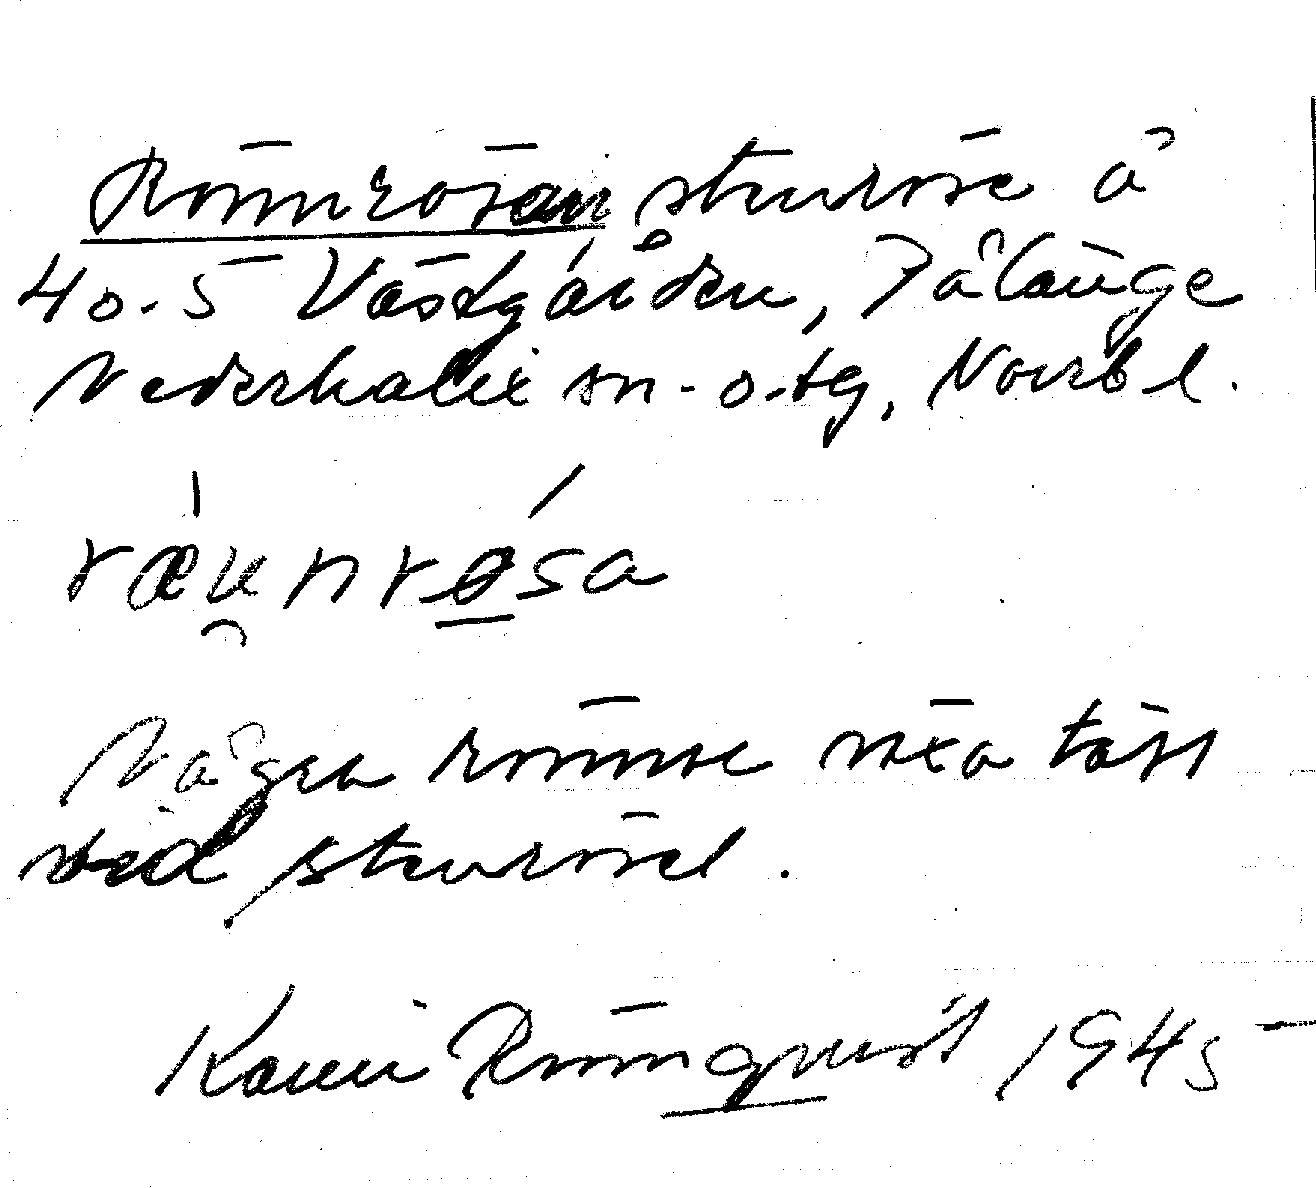 Rönnrösan stenröse å
40.5 Västgården, Pålänge
Nederkalix sn - o. tg, Norrb l.
ræunrøsa
Några rönnar växa tätt
vid stenröset.
Karin Rönnqvist 1945